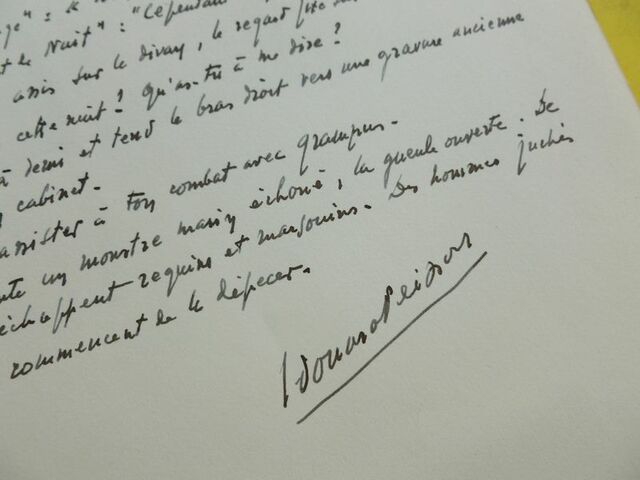 ge" : "
t de Nuit" : "Cependant
assis sur le divan, le regard fixe
cette nuit ? Qu'as-tu à me dire ?
à demi et tend le bras droit vers une gravure ancienne
cabinet.
assister à ton combat avec grampus.
un monstre marin échoué, la gueule ouverte. De
échappent requins et marsouins. Des hommes juchés
commencent de le dépecer.
Edouard Peisson